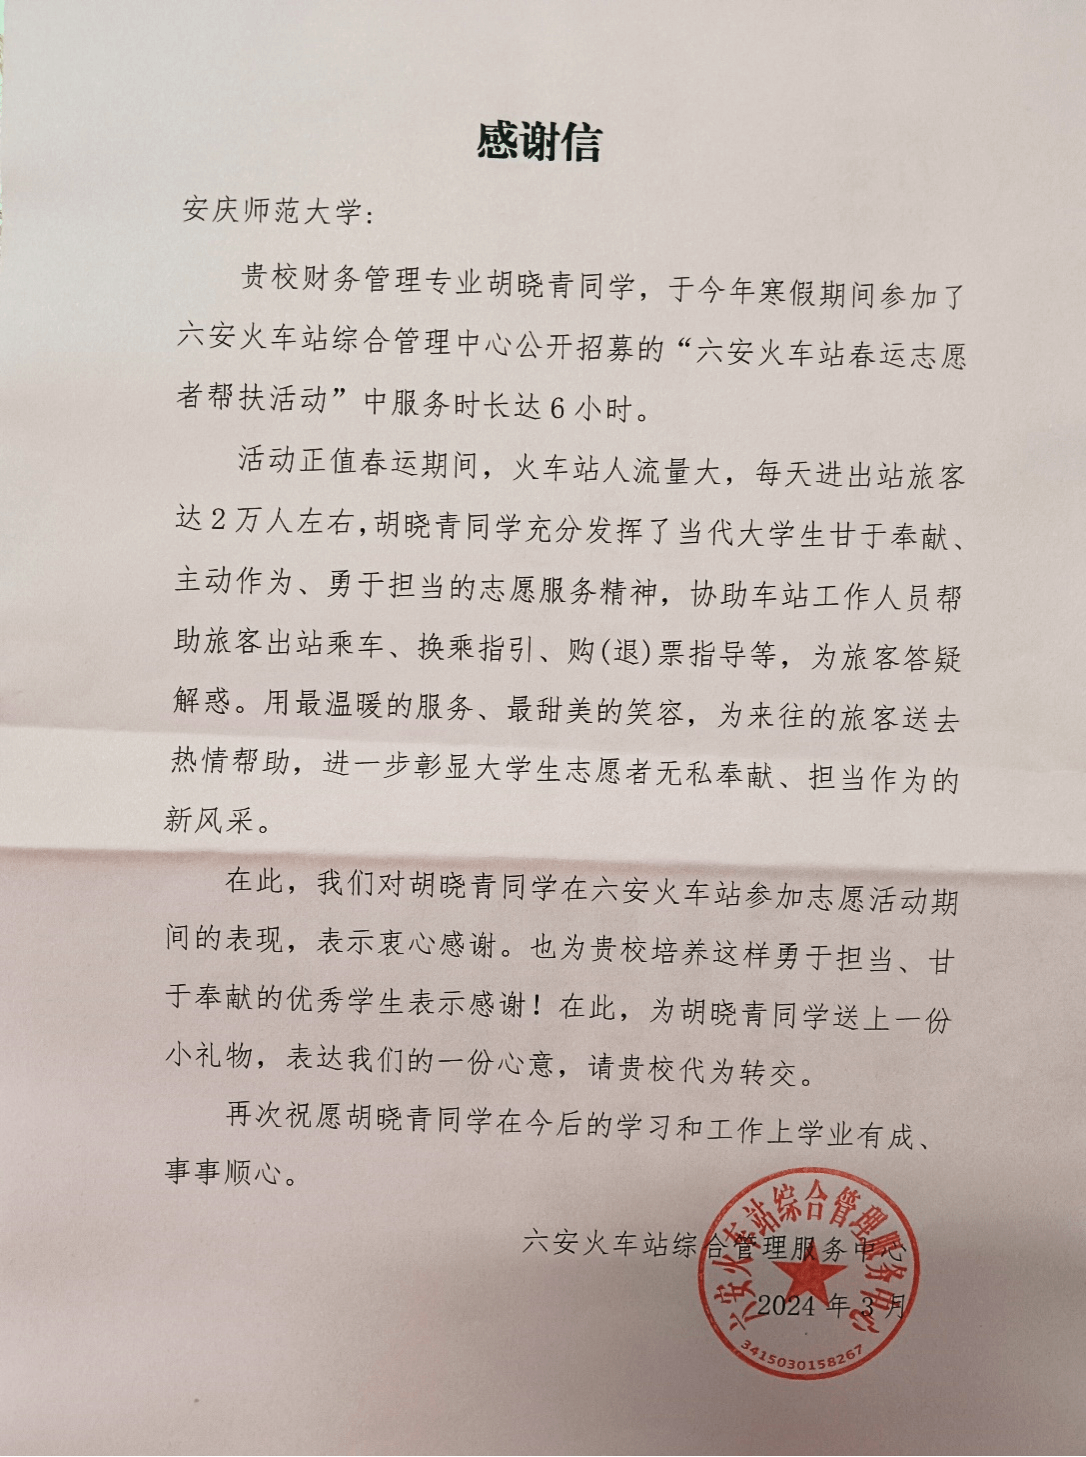 感谢信
安庆师范大学:
贵校财务管理专业胡晓青同学，于今年寒假期间参加了
六安火车站综合管理中心公开招募的“六安火车站春运志愿
者帮扶活动”中服务时长达6小时。
活动正值春运期间，火车站人流量大，每天进出站旅客
达2万人左右,胡晓青同学充分发挥了当代大学生甘于奉献、
主动作为、勇于担当的志愿服务精神，协助车站工作人员帮
助旅客出站乘车、换乘指引、购(退)票指导等，为旅客答疑
解惑。用最温暖的服务、最甜美的笑容，为来往的旅客送去
热情帮助，进一步彰显大学生志愿者无私奉献、担当作为的
新风采。
在此，我们对胡晓青同学在六安火车站参加志愿活动期
间的表现，表示衷心感谢。也为贵校培养这样勇于担当、甘
于奉献的优秀学生表示感谢！在此，为胡晓青同学送上一份
小礼物，表达我们的一份心意，请贵校代为转交。
再次祝愿胡晓青同学在今后的学习和工作上学业有成、
事事顺心。
六安火车站综合管理服务中心
2024年3月
六安火车站综合管理服务中心
3415030158267